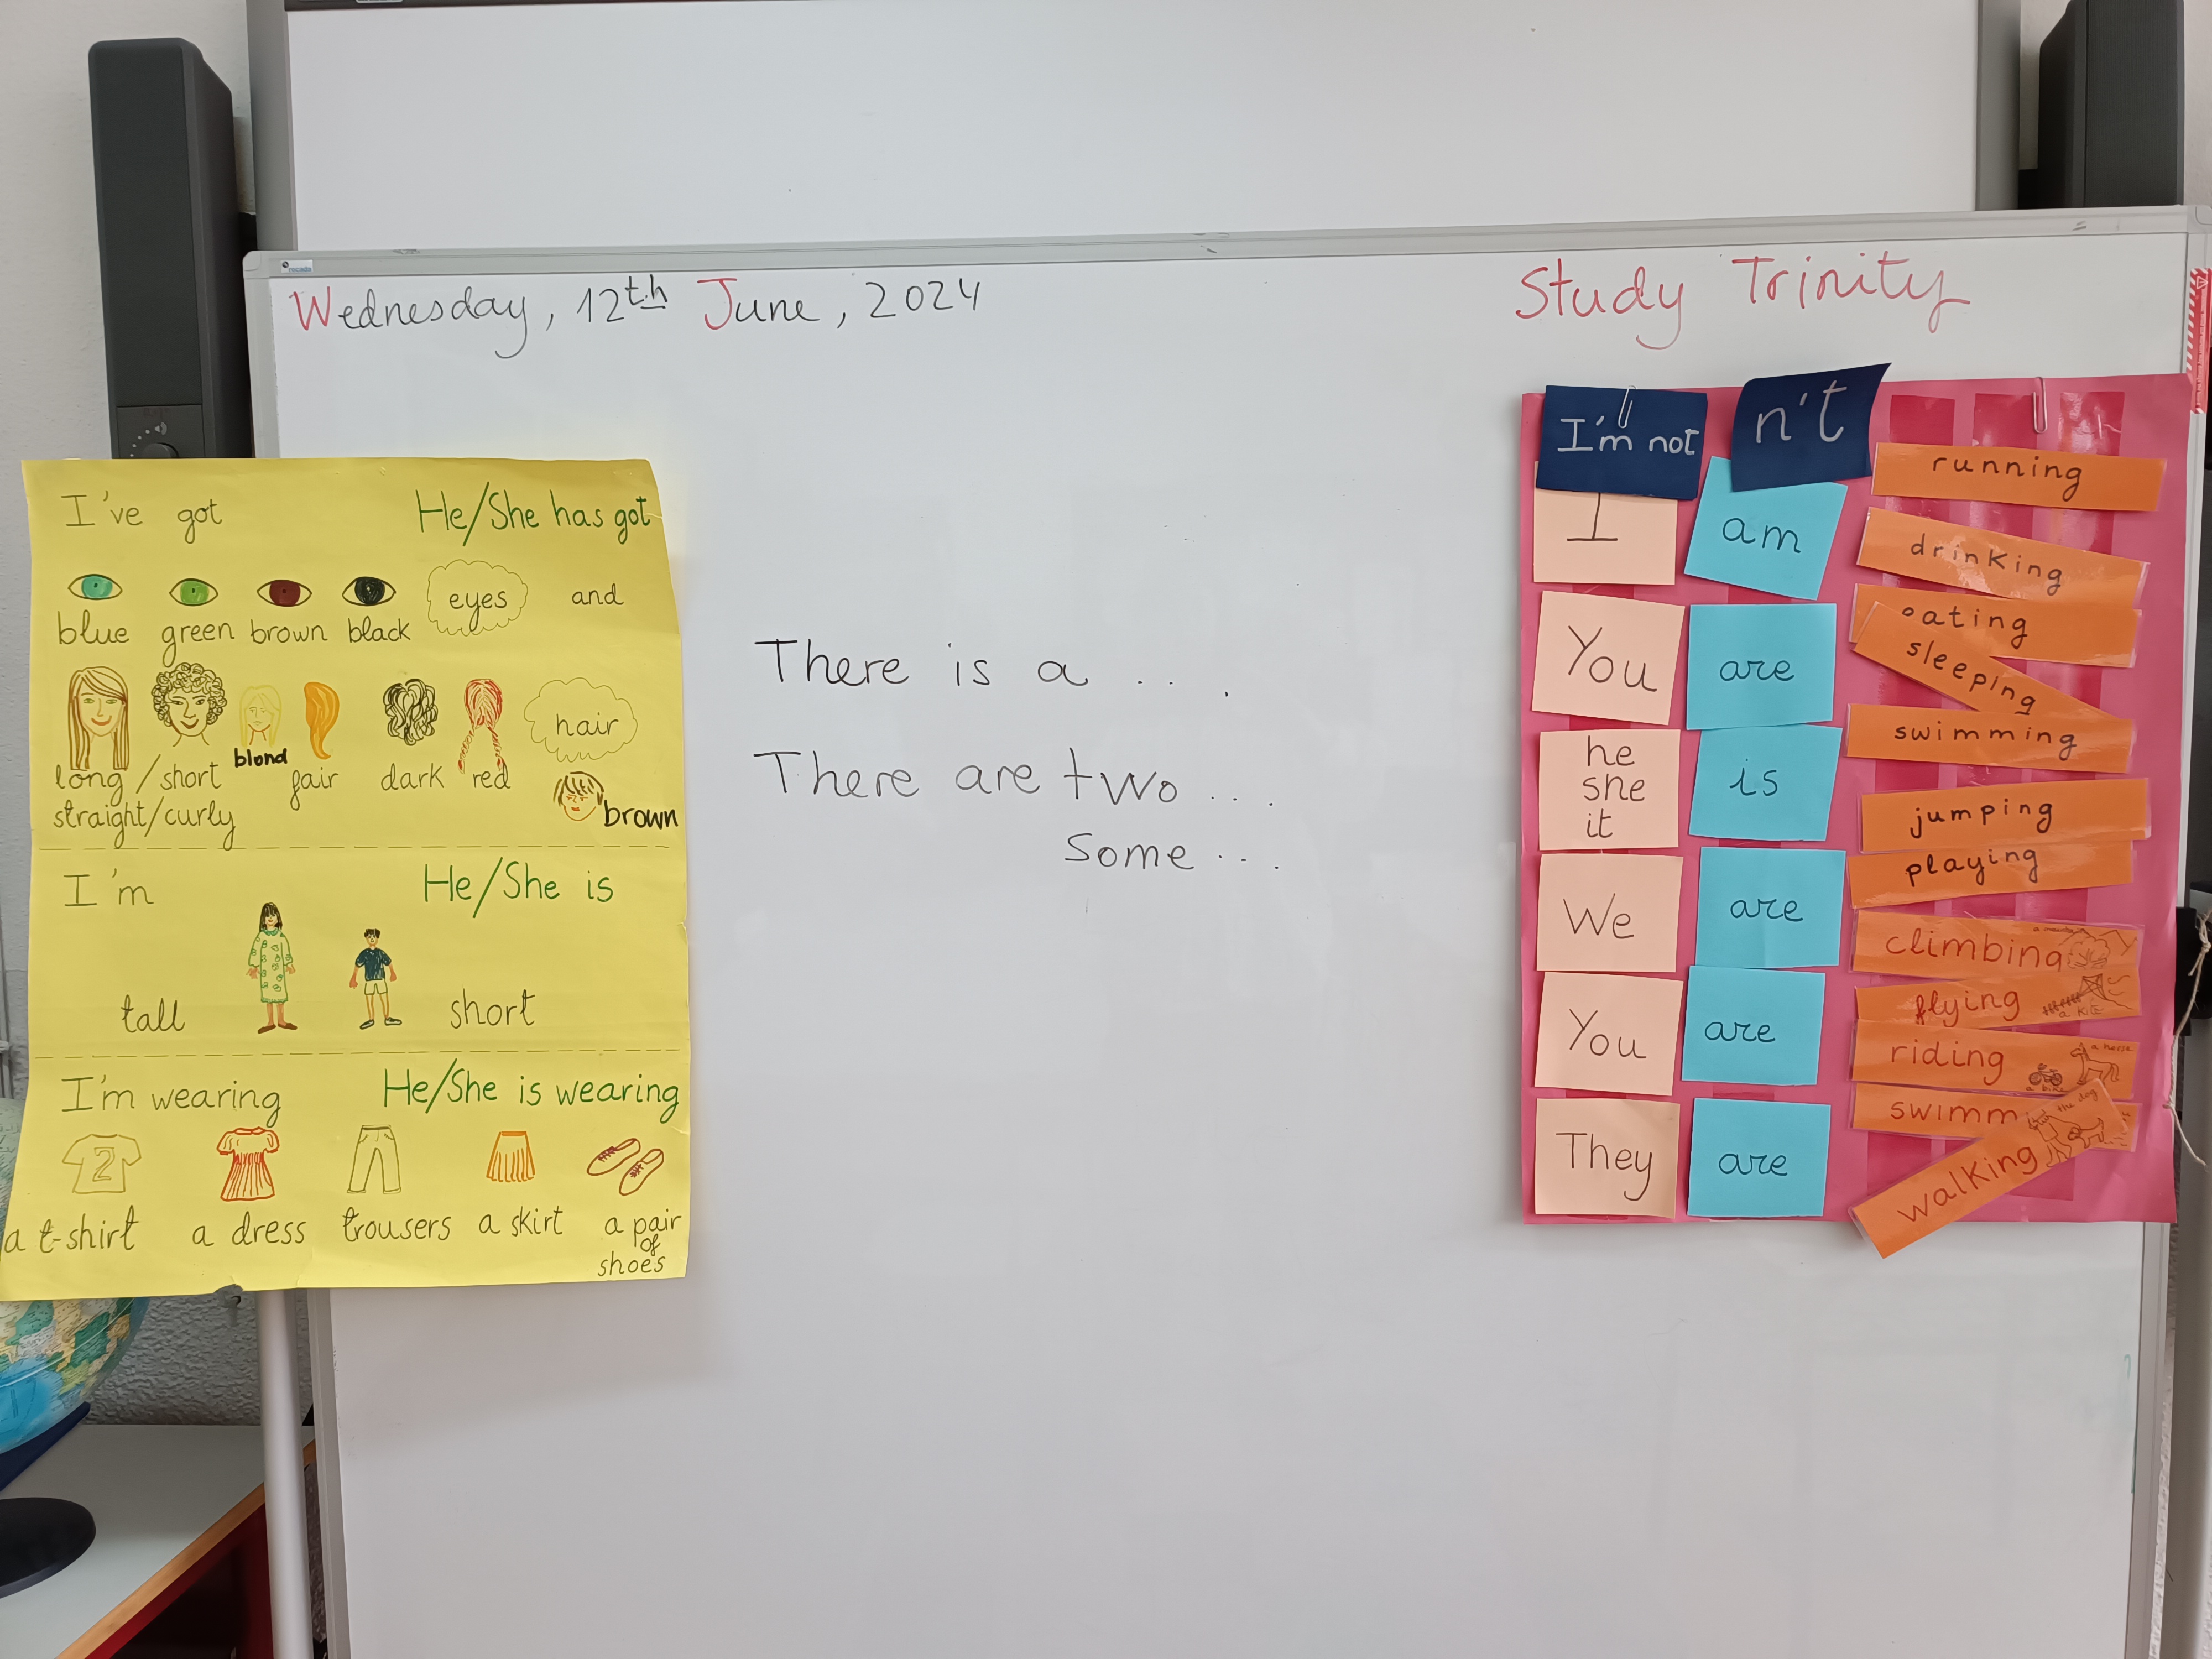 Wednesday, 12th June, 2024
Study Trinity
I've got He/She has got
blue green brown black eyes and
long / short blond fair dark red hair
straight/curly brown
I'm He/She is
tall short
I'm wearing He/She is wearing
a t-shirt a dress trousers a skirt a pair
of
shoes
There is a ...
There are two ...
Some ...
I'm not n't
I am
You are
he
she
it
is
We are
You are
They are
running
drinking
eating
sleeping
swimming
jumping
playing
climbing
flying
a kite
riding
a horse
swimm
the dog
walking